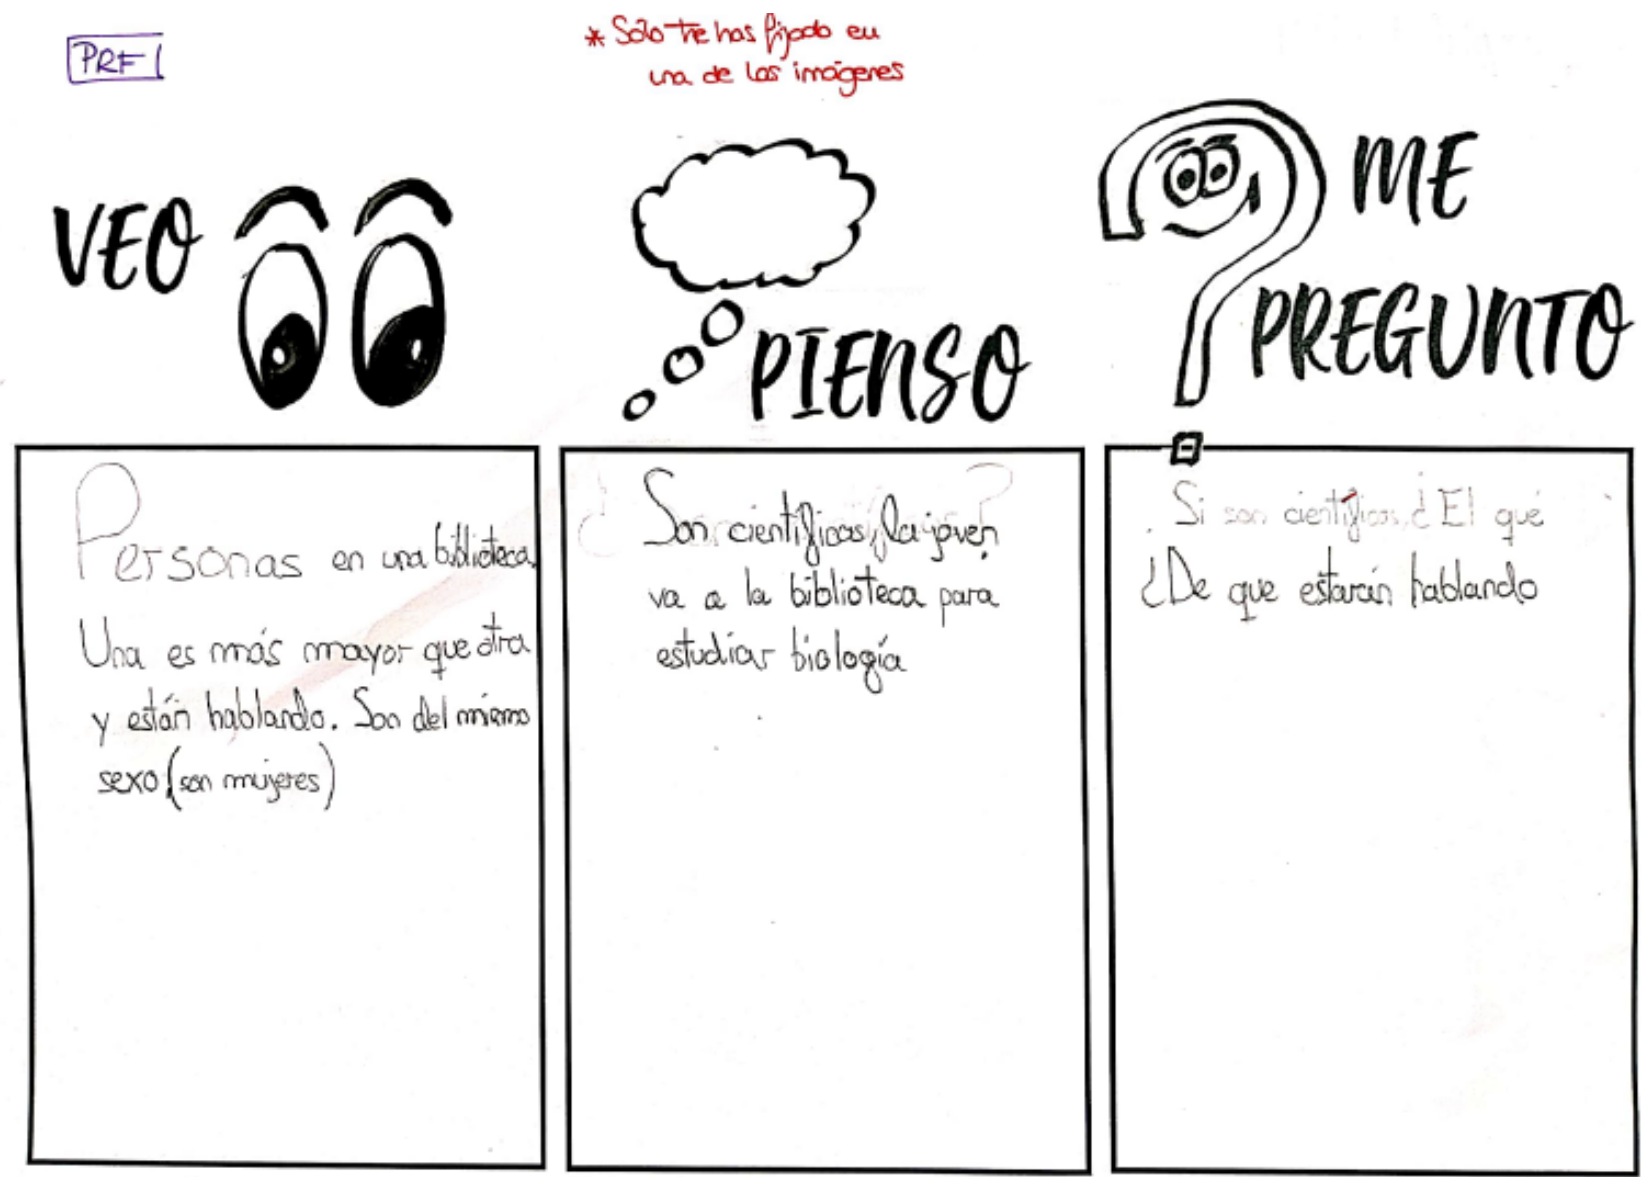 PRE 1
* Sólo te has fijado en
una de las imágenes
VEO
PIENSO
ME
PREGUNTO
Personas en una biblioteca.
Una es más mayor que otra
y están hablando. Son del mismo
sexo (son mujeres)
Son científicas, la joven
va a la biblioteca para
estudiar biología
Si son científicas ¿El qué
¿De que estarán hablando